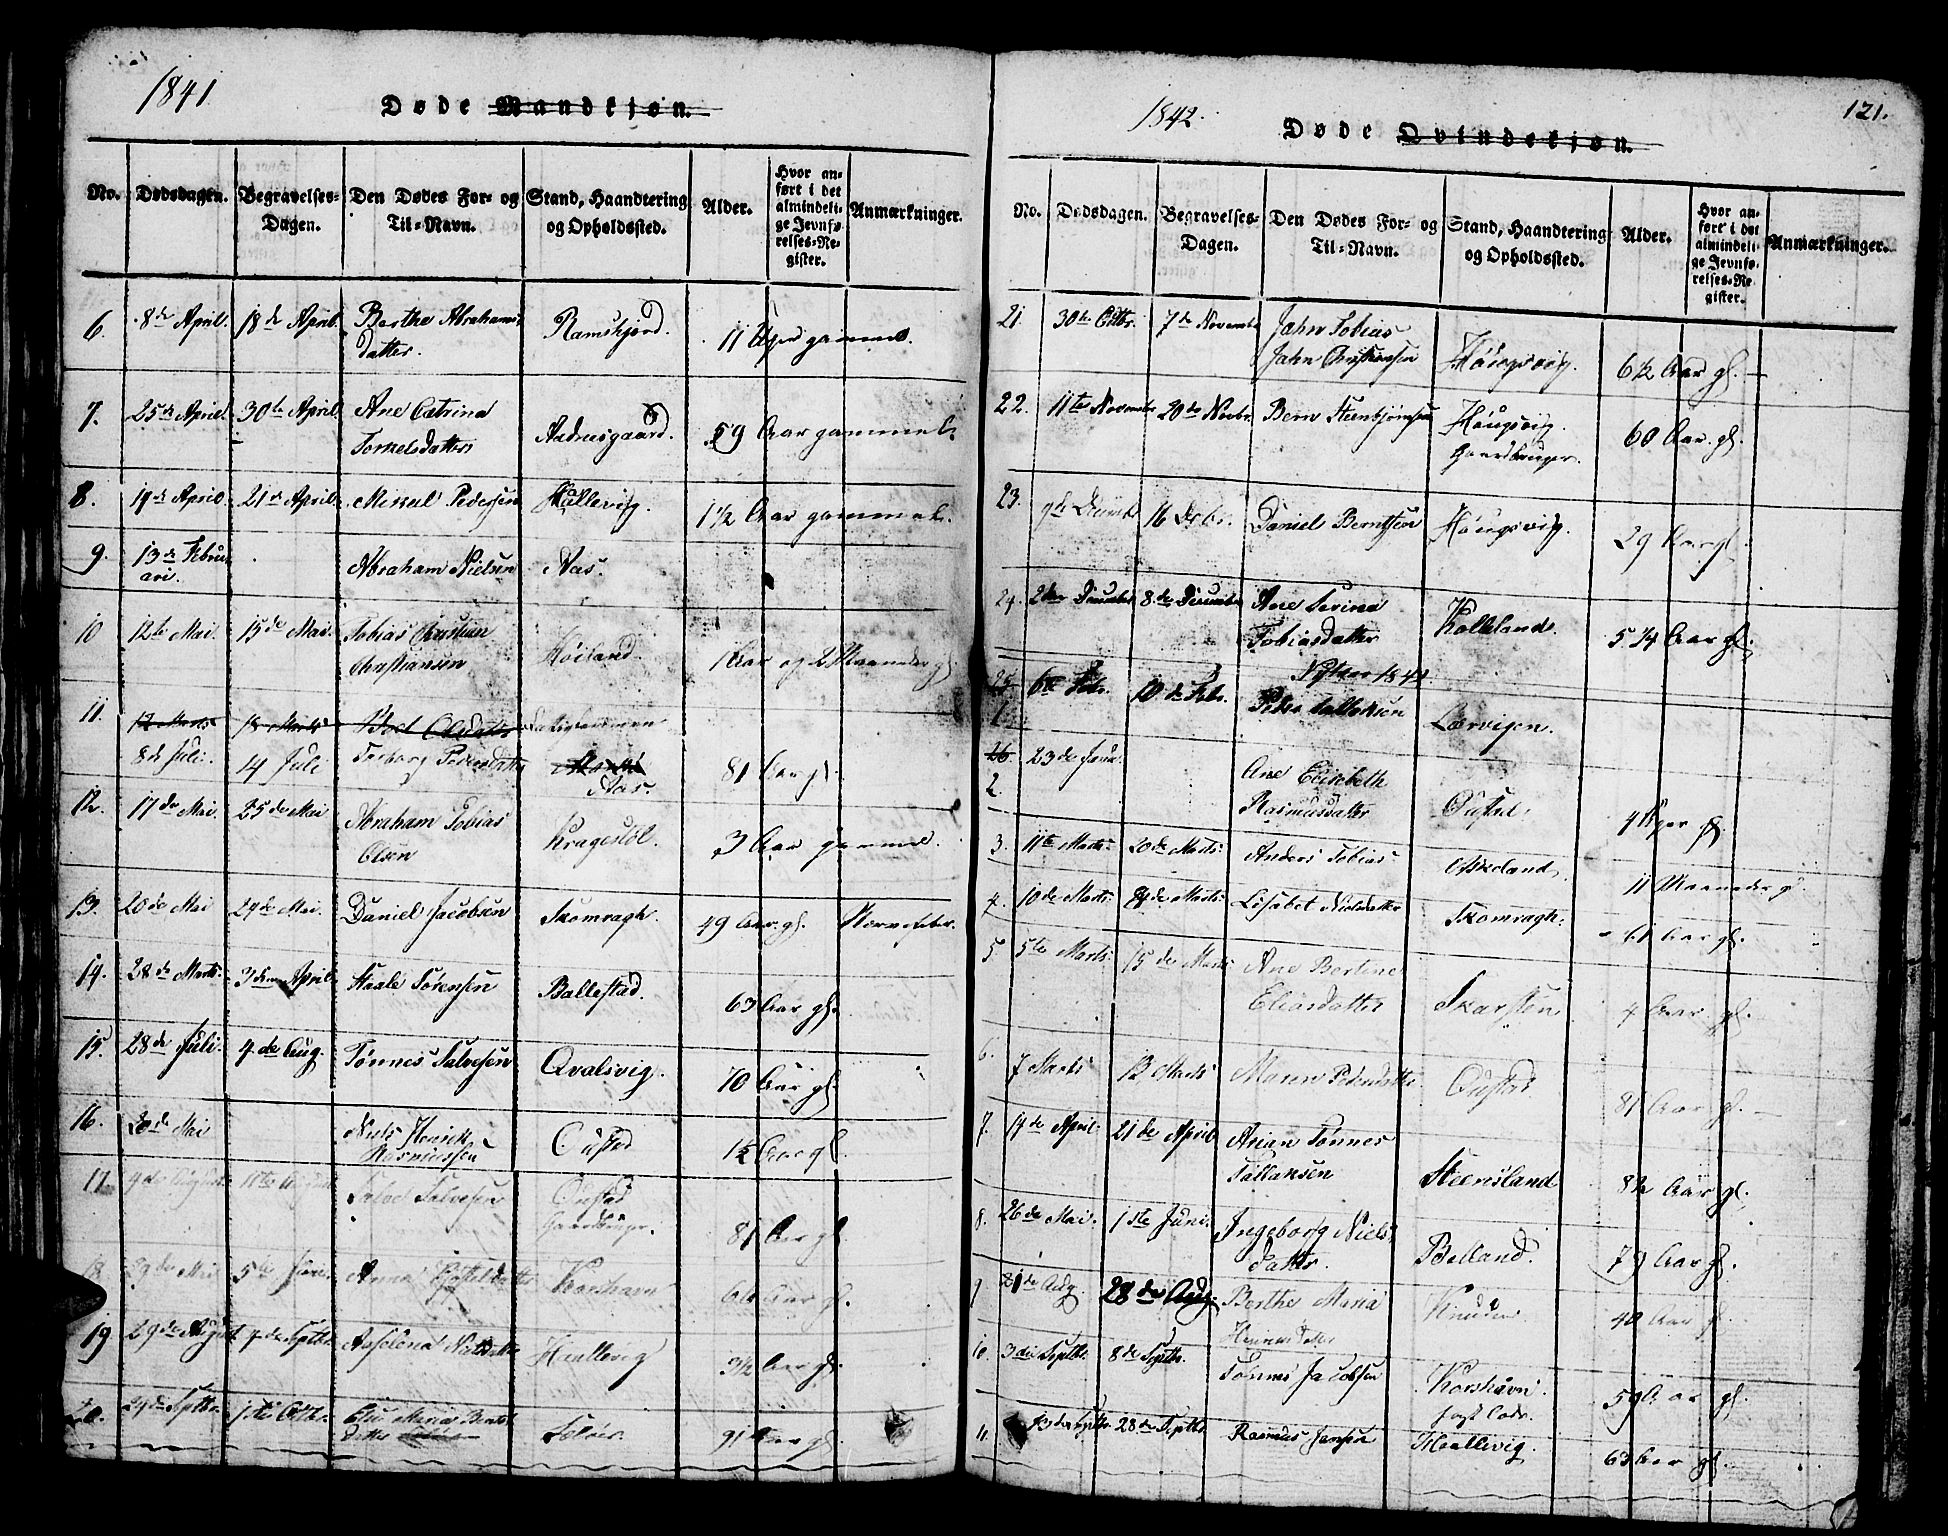 1841
Døde Mandkjøn.
No. Dødsdagen. Begravelses-Dagen. Den Dødes For- og Til-Navn. Stand, Haandtering og Opholdssted. Alder. Hvor anført i det almindelige Jevnførelses-Register. Anmærkninger.
6. 8de April. 18de April. Berthe Abrahams
datter. Ramskjord. 11 Uger gammel.
7. 25de April. 30te April. Ane Catrina
Torkelsdatter Aadnesgaard. 59 Aar gammel.
8. 19de April. 21de April. Mikkal Pedersen Hullevig. 1 1/2 Aar gammel.
9. 13de Febru
ari. Abraham Nielsen Aas.
10 12te Mai. 15de Mai. Tobias Christian
Christiansen Høiland. 1 Aar og 2 Maaneder gl.
11. 12 Marts 18 Marts Olsdatter
8de Juli. 14 Juli Pedersdatter 81 Aar gl.
Aas.
12. 17de Mai. 25de Mai Abraham Tobias
Olsen Kragesøl. 3 Aar gammel.
13. 20de Mai 24de Mai. Daniel Jacobsen Skomragh. 49 Aar. gl. Nervefeber.
14. 28de Marts. 3die April Staale Sørensen Ballestad. 63 Aar gl.
15. 28de Juli. 4de Aug. Tønnes Salvesen Qvalsvig. 70 Aar gl.
16. 20de Mai Niels Henrik
Rasmussen Oustad 1 1/2 Aar gl.
17 9de August Salve Salvesen Oustad
Gaardbruger. 81 Aar gl.
18 29de Mai 5te Anna Korshavn Aar gl.
19 29de August 4de Septbr. Aselena Hullevig 3 1/2 Aar gl.
20. 24de Septbr. 1ste Octbr. Maria Bernts
datter Seløer. 91 Aar gl.
1842.
Døde Qvindekjøn.
121.
No. Dødsdagen. Begravelses-Dagen. Den Dødes For- og Til-Navn. Stand, Haandtering og Opholdssted. Alder. Hvor anført i det almindelige Jevnførelses-Register. Anmærkninger.
21. 30te Octbr. 7de November John Tobias
John Christensen Høugsvig. 6 1/2 Aar gl.
22. 11te November 20de Novbr. Bern Steenbjørnsen Høugsvig.
Gaardbruger. 60 Aar. gl.
23. 9de Decembr 16 Decbr. Daniel Berntsen Høugsvig. 29 Aar gl.
24. 2den December 8de December Ane Serina
Tobiasdatter Kolleland. 5 1/4 Aar gl.
Nytaar 1842
25 6te Febr. 10de Febr. Peder Tallaksen Lærvigen.
1.
26 23de Janu. Ane Elisebeth
2. Rasmusdatter Oustad. 4 Uger gl.
3. 11te Marts. 20de Marts. Anders Tobias Askeland. 11 Maaneder gl.
4. 10de Marts. Marts. Lisabet Nielsdatter Skomragh. 61 Aar gl.
5. 5te Marts. 15de Marts Ane Bertine
Eliasdatter Skarsten 4 Aar gl.
6. 7 Marts 12 Marts Maren Pedersdatter Oustad. 81 Aar gl.
7. 14de April. 21de April Arian Tønnes
Tallaksen Steensland 8 1/2 Aar gl.
8. 26de Mai. 1ste Juni. Ingeborg Niels
datter. Bølland. 79 Aar gl.
9. 21de Aug. 28de Aug. Berthe Maria Knuden 40 Aar gl.
10. 3die Septbr. 8de Septbr. Tønnes Jacobsen Korshavn. 59 Aar gl.
11 Septbr. 28de Septbr. Rasmus Jansen Hullevig. 63 Aar gl.